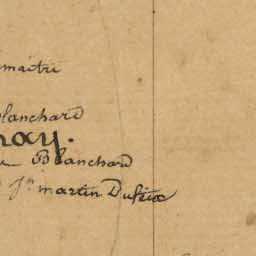 maitre
Blanchard
nay.
Blanchard
Jn martin Dufaix